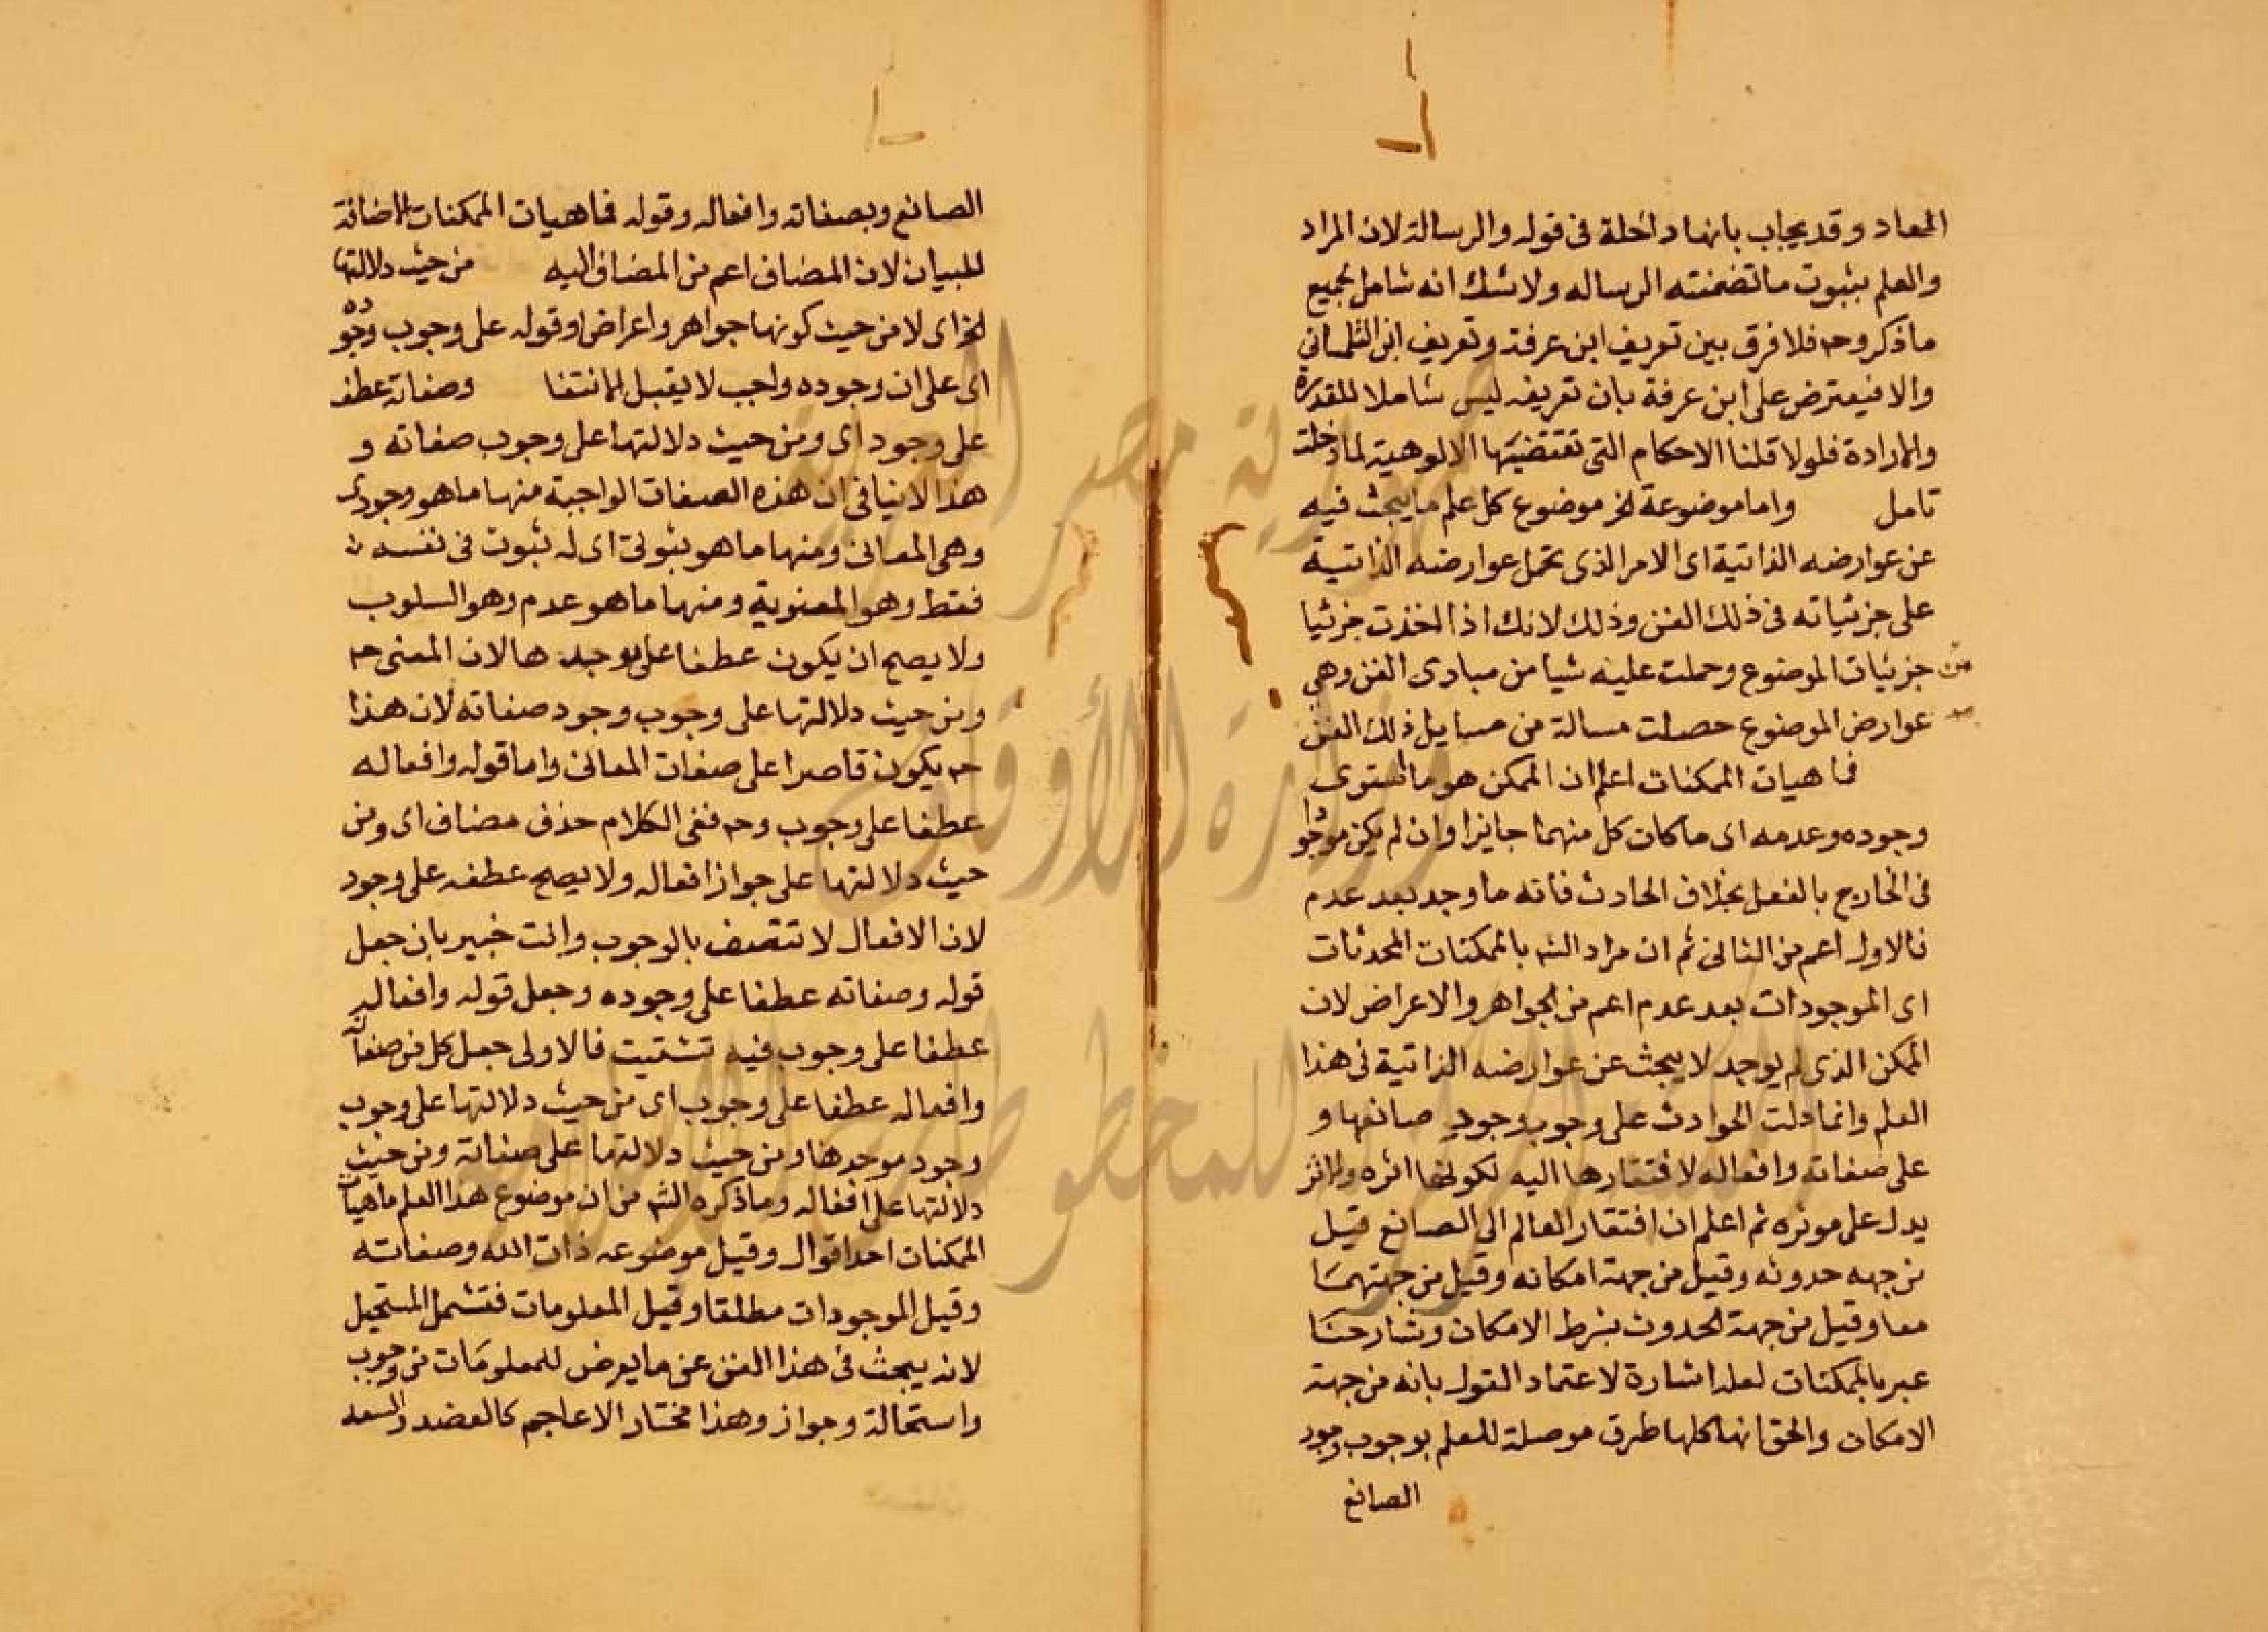 المعاد وقد يجاب بانها داخلة فى قوله والرسالة لان المراد
والعلم بثبوت ما تضمنته الرساله ولا شك انه شامل لجميع
ما ذكر وحـ فلا فرق بين تعريف ابن عرفة وتعريف ابن التلمسانى
والا فيعترض على ابن عرفة بان تعريفه ليس شاملا للقدرة
والارادة فلولا قلنا الاحكام التى تقتضيها الالوهية لما دخلت
تامل واما موضوعة الخ موضوع كل علم ما يبحث فيه
عن عوارضه الذاتية اى الامر الذى تحمل عوارضه الذاتية
على جزئياته فى ذلك الفن وذلك لانك اذا اخذت جزئيا
من جزئيات الموضوع وحملت علينه شيا من مبادى الفن وهى
عوارض الموضوع حصلت مسالة من مسايل ذلك الفن
فماهيات الممكنات اعلم ان الممكن هو ما استوى
وجوده وعدمه اى ما كان كل منهما جايزا وان لم يكن موجودا
فى الخارج بالفعل بخلاف الحادث فانه ما وجد بعد عدم
فالاول اعم من الثانى ثم ان مراد الشـ بالممكنات المحدثات
اى الموجودات بعد عدم اعم من الجواهر والاعراض لان
الممكن الذى لم يوجد لا يبحث عن عوارضه الذاتية فى هذا
العلم وانما دلت الحوادث على وجوب وجود صانعها و
على صفاته وافعاله لافتقارها اليه لكونها اثره والاثر
يدل على موثره ثم اعلم ان افتقار العالم الى الصانع قيل
من جهه حدوثه وقيل من جهة امكانه وقيل من جهتهما
معا وقيل من جهة الحدوث بشرط الامكان وشارحنا
عبر بالممكنات لعله اشارة لاعتماد القول بانه من جهة
الامكان والحق انها كلها طرق موصلة للعلم بوجوب وجود
الصانع
الصانع وبصفاته وافعاله وقوله فماهيات الممكنات الاضافة
للبيان لان المضاف اعم من المضاف اليه من حيث دلالتها
الخ اى لا من حيث كونها جواهر واعراض وقوله على وجوب وجوده
اى على ان وجوده واجب لا يقبل الانتفا وصفاته عطف
على وجود اى ومن حيث دلالتها على وجوب صفاته و
هذا لا ينافى ان هذه الصفات الواجبة منها ما هو وجودى
وهى المعانى ومنها ما هو ثبوتى اى له ثبوت فى نفسه
فقط وهو المعنوية ومنها ما هو عدم وهو السلوب
ولا يصح ان يكون عطفا على موجدها لان المعنى حـ
ومن حيث دلالتها على وجوب وجود صفاته لان هذا
حـ يكون قاصرا على صفات المعانى واما قوله وافعاله
عطفا على وجوب وحـ ففى الكلام حذف مضاف اى ومن
حيث دلالتها على جواز افعاله ولا يصح عطفه على وجود
لان الافعال لا تتصف بالوجوب وانت خبير بان جعل
قوله وصفاته عطفا على وجوده وجعل قوله وافعاله
عطفا على وجوب فيه تشتيت فالاولى جعل كل من صفاته
وافعاله عطفا على وجوب اى من حيث دلالتها على وجوب
وجود موجدها ومن حيث دلالتها على صفاته ومن حيث
دلالتها على افعاله وما ذكره الشـ من ان موضوع هذا العلم ماهيات
الممكنات احد اقوال وقيل موضوعه ذات الله وصفاته
وقيل الموجودات مطلقا وقيل المعلومات فتشمل المستحيل
لانه يبحث فى هذا الفن عن ما يعرض للمعلومات من وجوب
واستحالة وجواز وهذا مختار الاعاجم كالعضد والسعد
جمهورية مصر العربية
وزارة الأوقاف